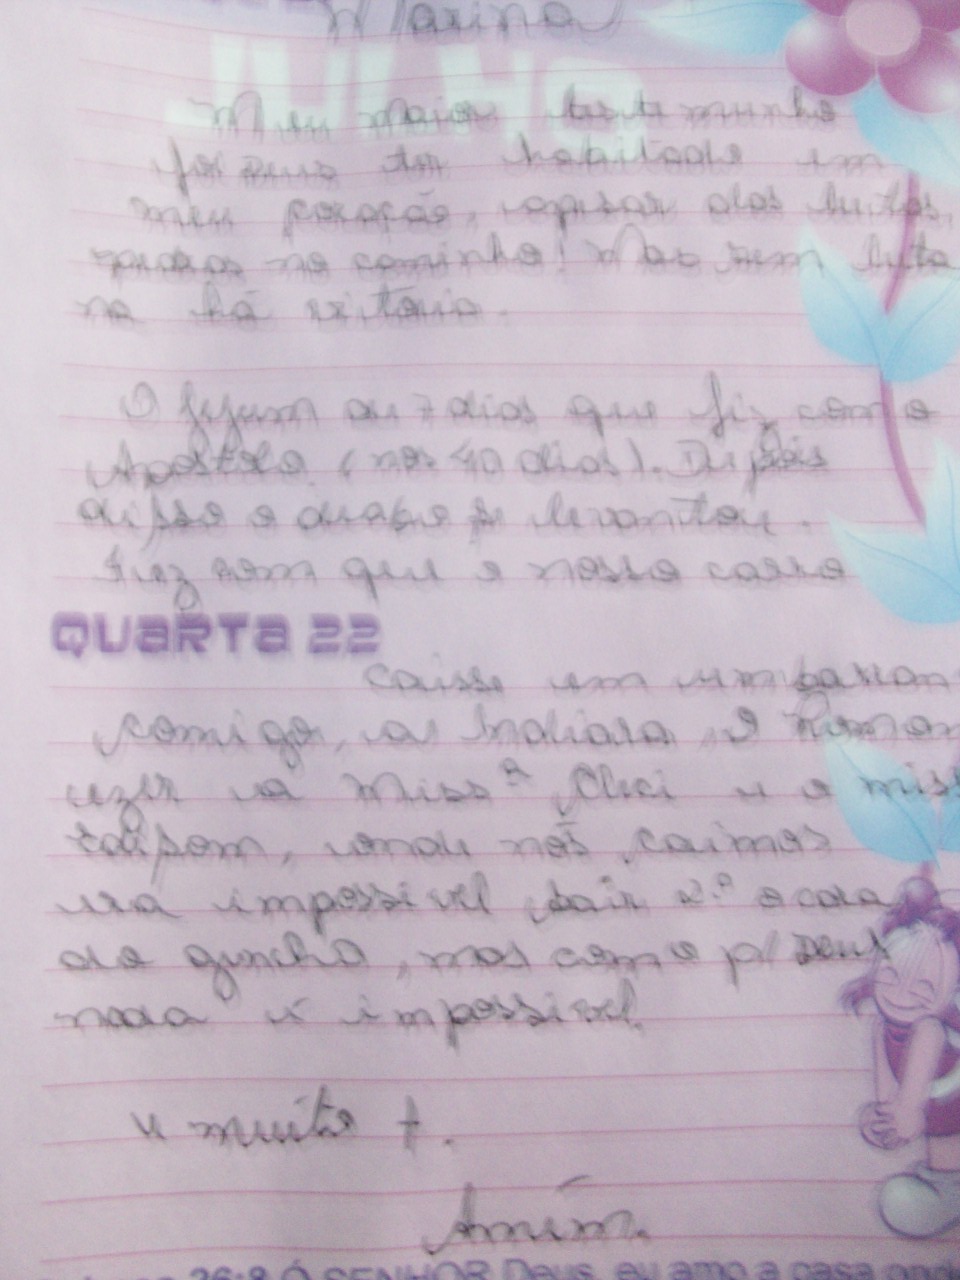 Marina
JULHO
Meu maior testemunho
foi Deus ter habitado em
meu coração, apesar das lutas,
no caminho! Mas sem luta
na há vitória.
O jejum de 7 dias que fiz com o
Apostolo (nos 40 dias). Depois
disso o diabo se levantou.
Fez com que o nosso carro
QUARTA 22
caisse em um
comigo, a Indiara, o
a Missª e o miss
onde nós caimos
era impossivel sair 2º o cara
do guncho, mas como p/ Deus
nada é impossivel.
e muito +.
Amém.
26:8 Ó SENHOR Deus, eu amo a casa onde